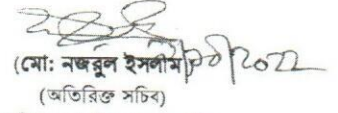 (মো: নজরুল ইসলাম)
2022
(অতিরিক্ত সচিব)